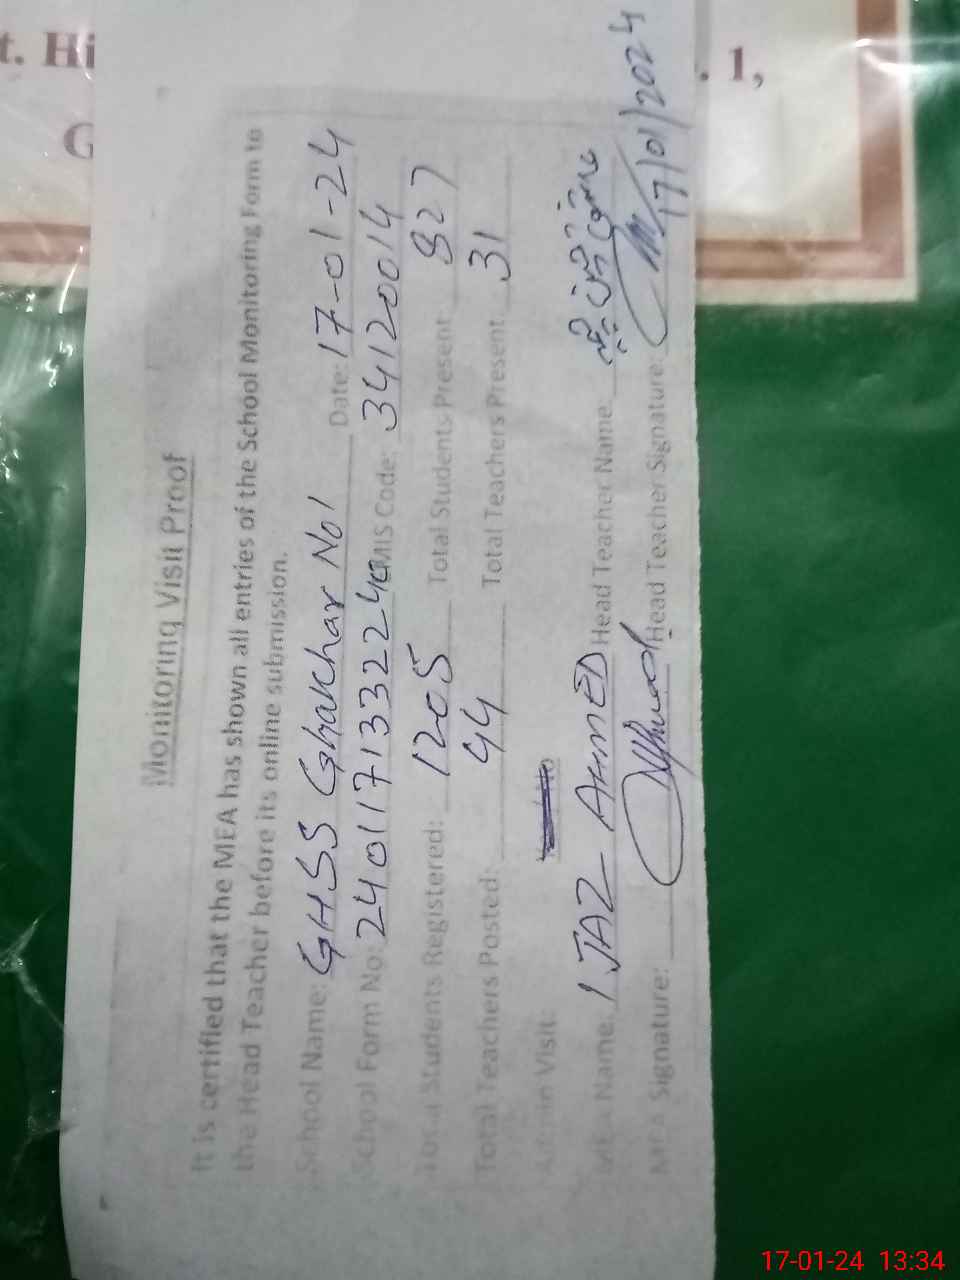 t. Hi
. 1,
G
Monitoring Visit Proof
It is certified that the MEA has shown all entries of the School Monitoring Form to
the Head Teacher before its online submission.
School Name: GHSS Ghakhar No1 Date: 17-01-24
School Form No: 240117133224 EMIS Code: 34120014
Total Students Registered: 1205 Total Students Present: 827
Total Teachers Posted: 44 Total Teachers Present 31
Admin Visit:
MEA Name: IJAZ AHMED Head Teacher Name
MEA Signature: Head Teacher Signature: 17/01/2024
17-01-24 13:34